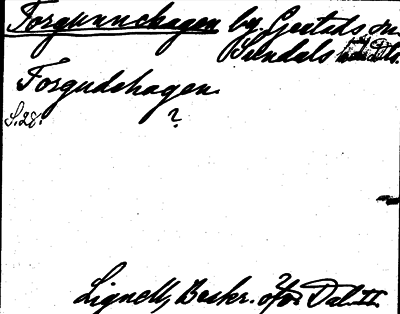 Torgunnehagen by. Gestads sn
Sundals hd. Dls.
Forgudehagen
S. 28. ?
Lignell, Beskr. öfver Dal. II